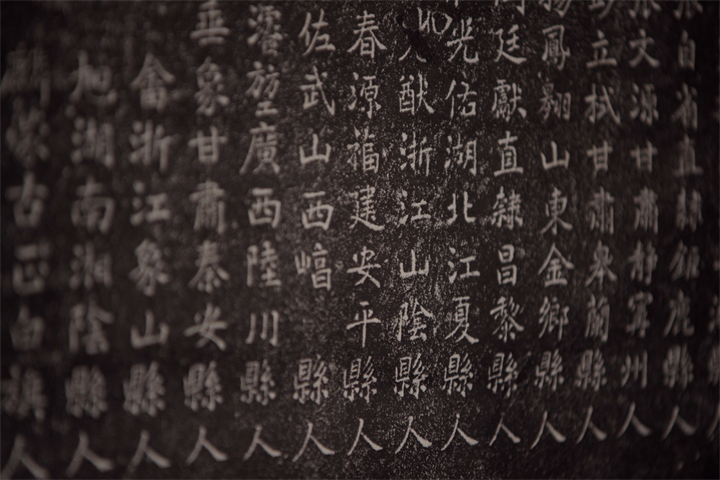 自省直隸鉅鹿縣人
文源甘肅靜寧州人
立栻甘肅皋蘭縣人
鳳翽山東金鄉縣人
廷獻直隸昌黎縣人
光佑湖北江夏縣人
猷浙江山陰縣人
春源福建安平縣人
佐武山西崞縣人
廣西陸川縣人
象甘肅秦安縣人
畬浙江象山縣人
湖南湘陰縣人
麟蒙古正白旗人